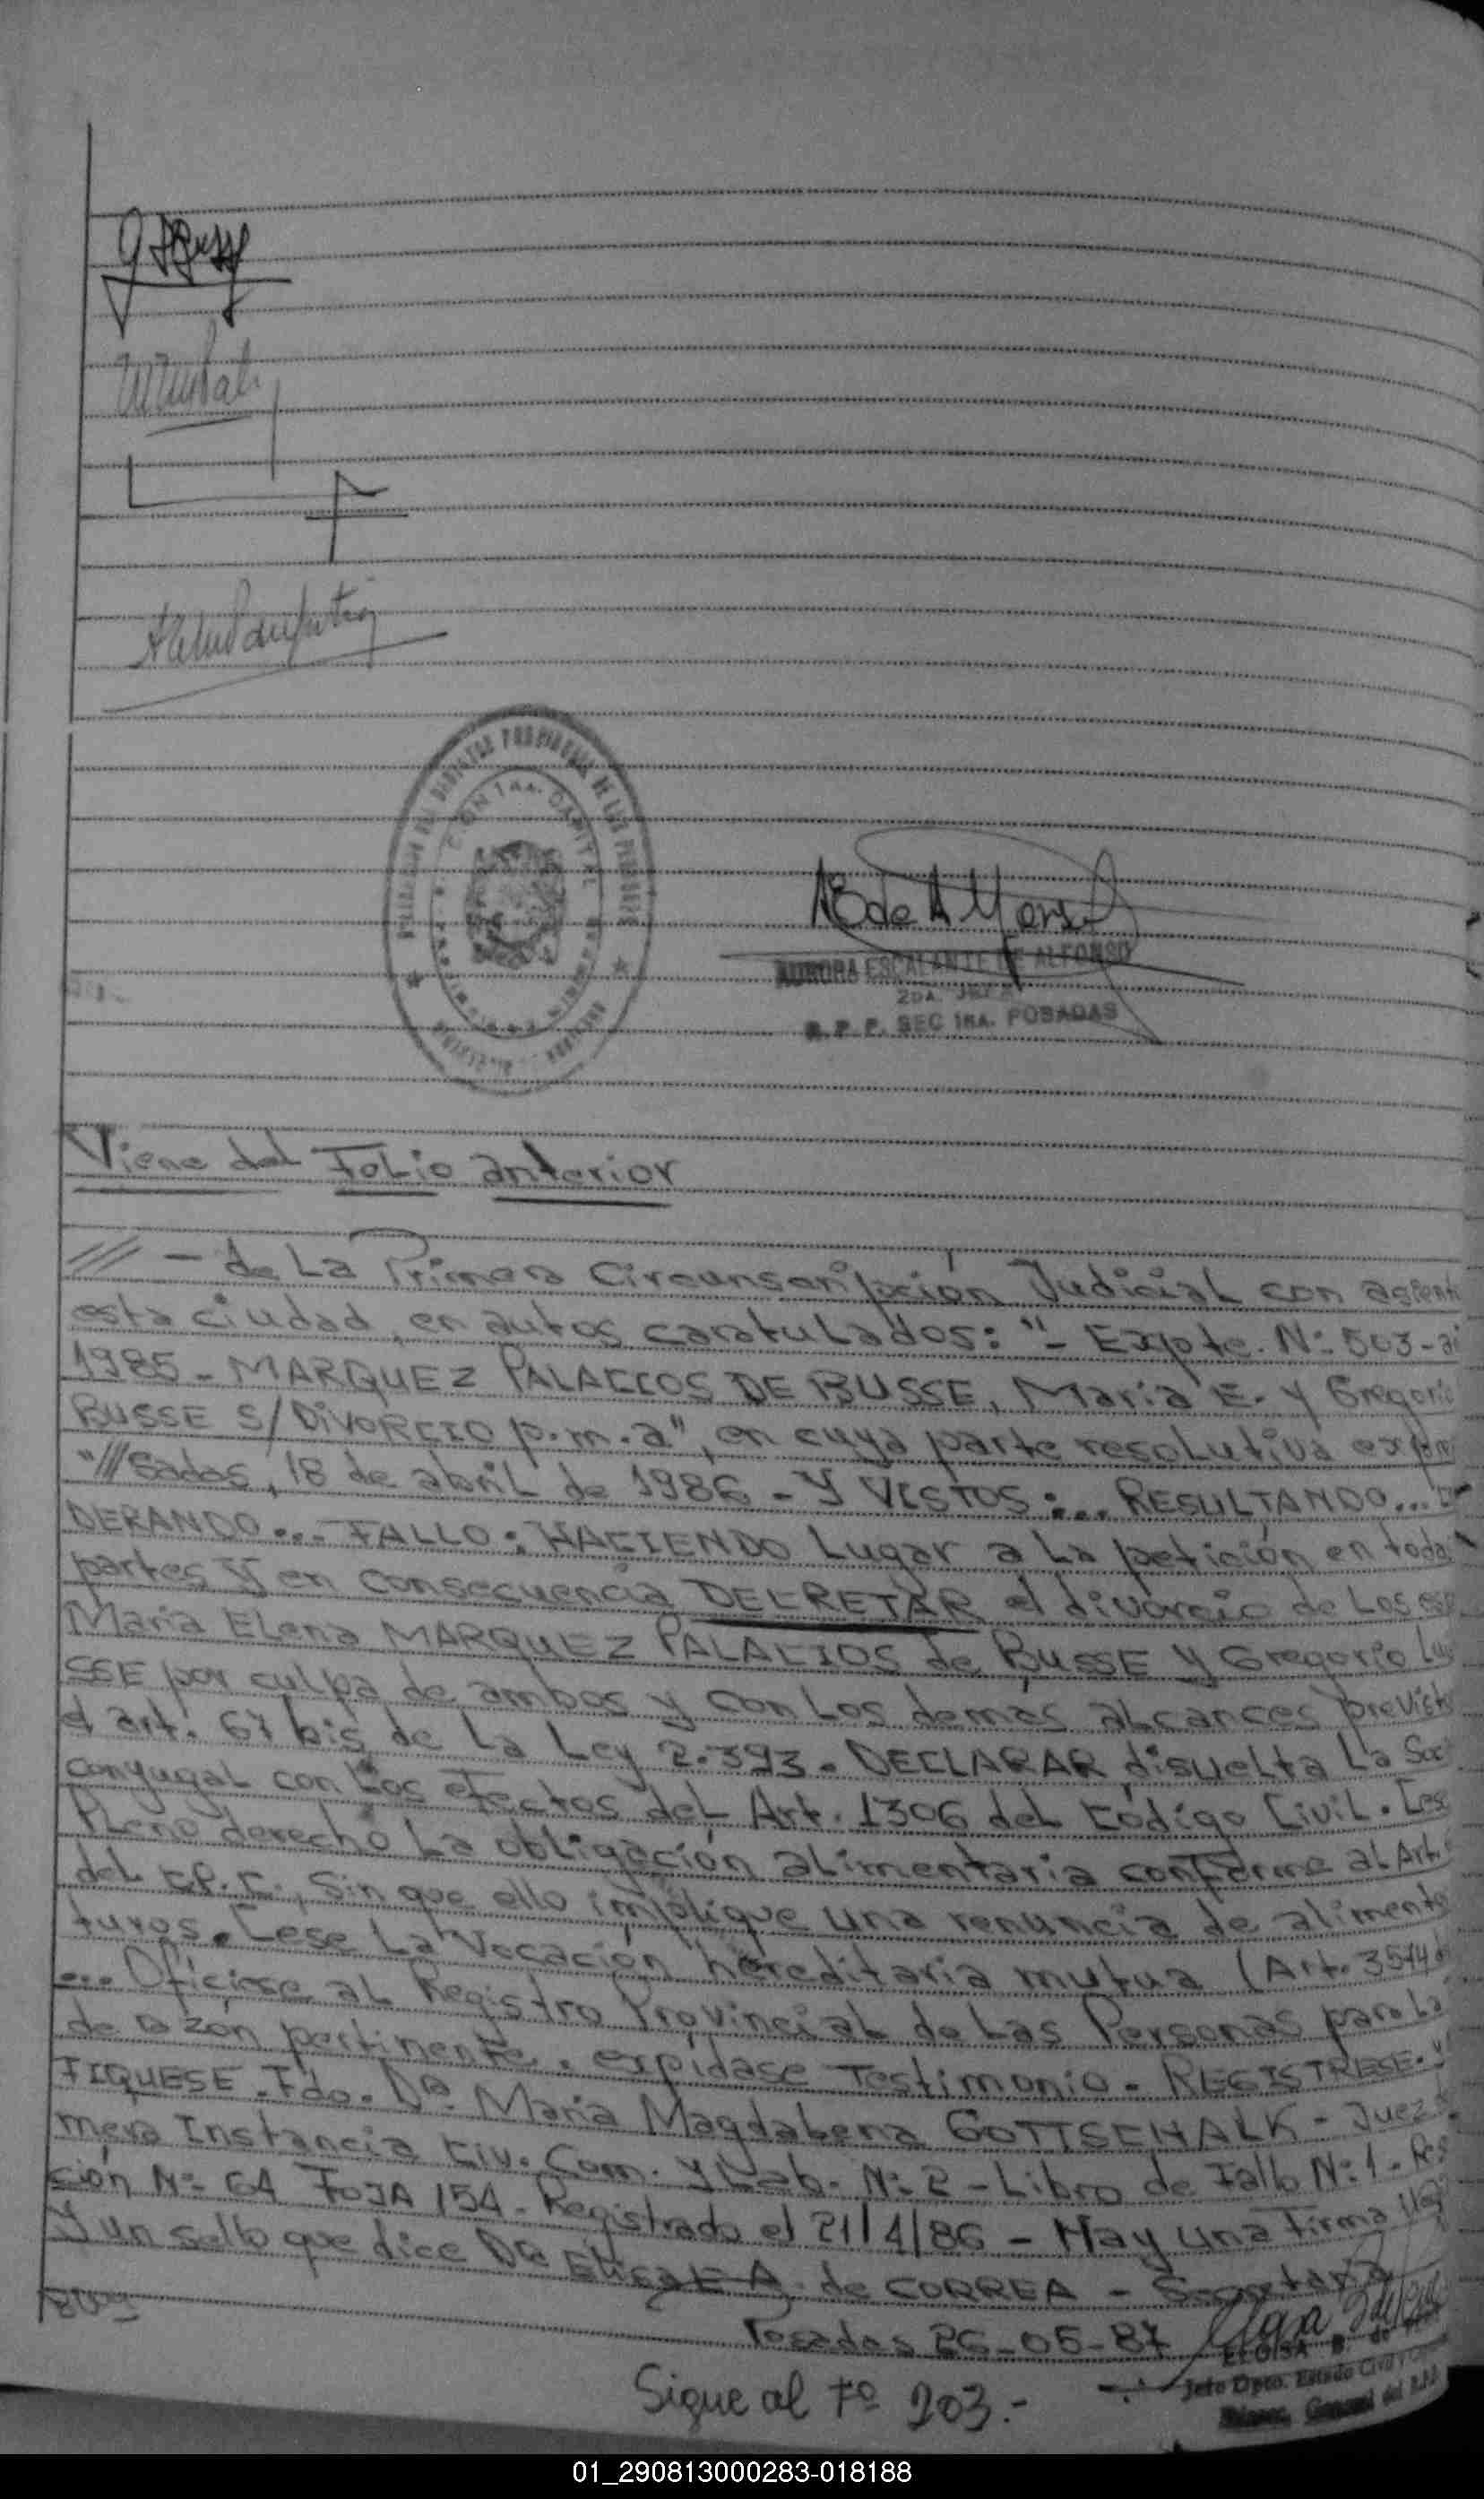 AURORA ESCALANTE DE ALFONSO
2DA. JEFA
R. P. P. SEC 1RA. POSADAS
Viene del Folio anterior
/// - de La Primera Circunscripción Judicial con asient
esta ciudad, en autos caratulados: "- Expte. N: 503-a
1985 - MARQUEZ PALACIOS DE BUSSE, María E. y Gregorio
BUSSE S/ DiVORCIO p.m.a", en cuya parte resolutiva expr
"///Sadas, 18 de abril de 1986 - Y VISTOS:... RESULTANDO...
DERANDO... FALLO: HACIENDO Lugar a La petición en toda
partes y en consecuencia DECRETAR el divorcio de Los esp
María Elena MARQUEZ PALACIOS de BUSSE y Gregorio Lu
SSE por culpa de ambos y con Los demas alcances previst
el art. 67 bis de La Ley 2.393. DECLARAR disuelta La Soc
conyugal con Los efectos del Art. 1306 del Código Civil. Ces
Pleno derecho La obligación alimentaria conforme al Art.
del CP.C., Sin que ello implique una renuncia de alimento
turos. Cese La Vocación hereditaria mutua (Art. 3574
... Oficiese al Registro Provincial de Las Personas para La
de razón pertinente. expídase Testimonio. REGISTRESE.
TIQUESE. Fdo. Dra. María Magdalena GOTTSCHALK - Juez
mera Instancia Civ. Com. y Lab. N: 2 - Libro de Fallo N: 1. Res
ción N: 64 FOJA 154. Registrado el 21/4/86 - Hay una Firma
Y un sello que dice Dra de CORREA - Secretaria
Posadas 26-05-87
ELOISA B. de
Jefe Dpto. Estado Civil y
General del R.P.P.
Sigue al Fº 203.-
01_290813000283-018188